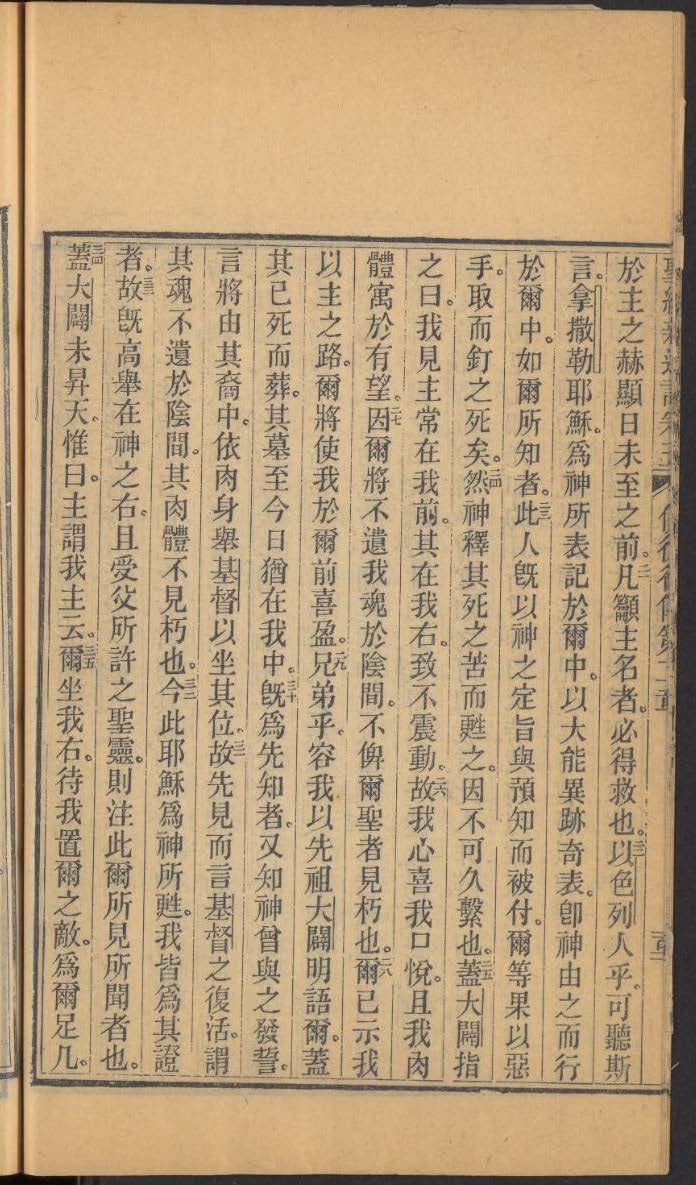 聖經新遺詔第五 使徒行傳第二章
於主之赫顯日未至之前。二一凡籲主名者。必得救也。二二以色列人乎。可聽斯
言。拿撒勒耶穌。爲神所表記於爾中。以大能異跡奇表。卽神由之而行
於爾中。如爾所知者。二三此人旣以神之定旨與預知而被付。爾等果以惡
手。取而釘之死矣。二四然神釋其死之苦而甦之。因不可久繫也。二五蓋大闢指
之曰。我見主常在我前。其在我右。致不震動。二六故我心喜我口悅。且我肉
體寓於有望。二七因爾將不遺我魂於陰間。不俾爾聖者見朽也。二八爾已示我
以主之路。爾將使我於爾前喜盈。二九兄弟乎。容我以先祖大闢明語爾。蓋
其已死而葬。其墓至今日猶在我中。三十旣爲先知者。又知神曾與之發誓。
言將由其裔中。依肉身舉基督以坐其位。三一故先見而言基督之復活。謂
其魂不遺於陰間。其肉體不見朽也。三二今此耶穌爲神所甦。我皆爲其證
者。三三故旣高舉在神之右。且受父所許之聖靈。則注此爾所見所聞者也。
三四蓋大闢未昇天。惟曰。主謂我主云。三五爾坐我右。待我置爾之敵。爲爾足几。